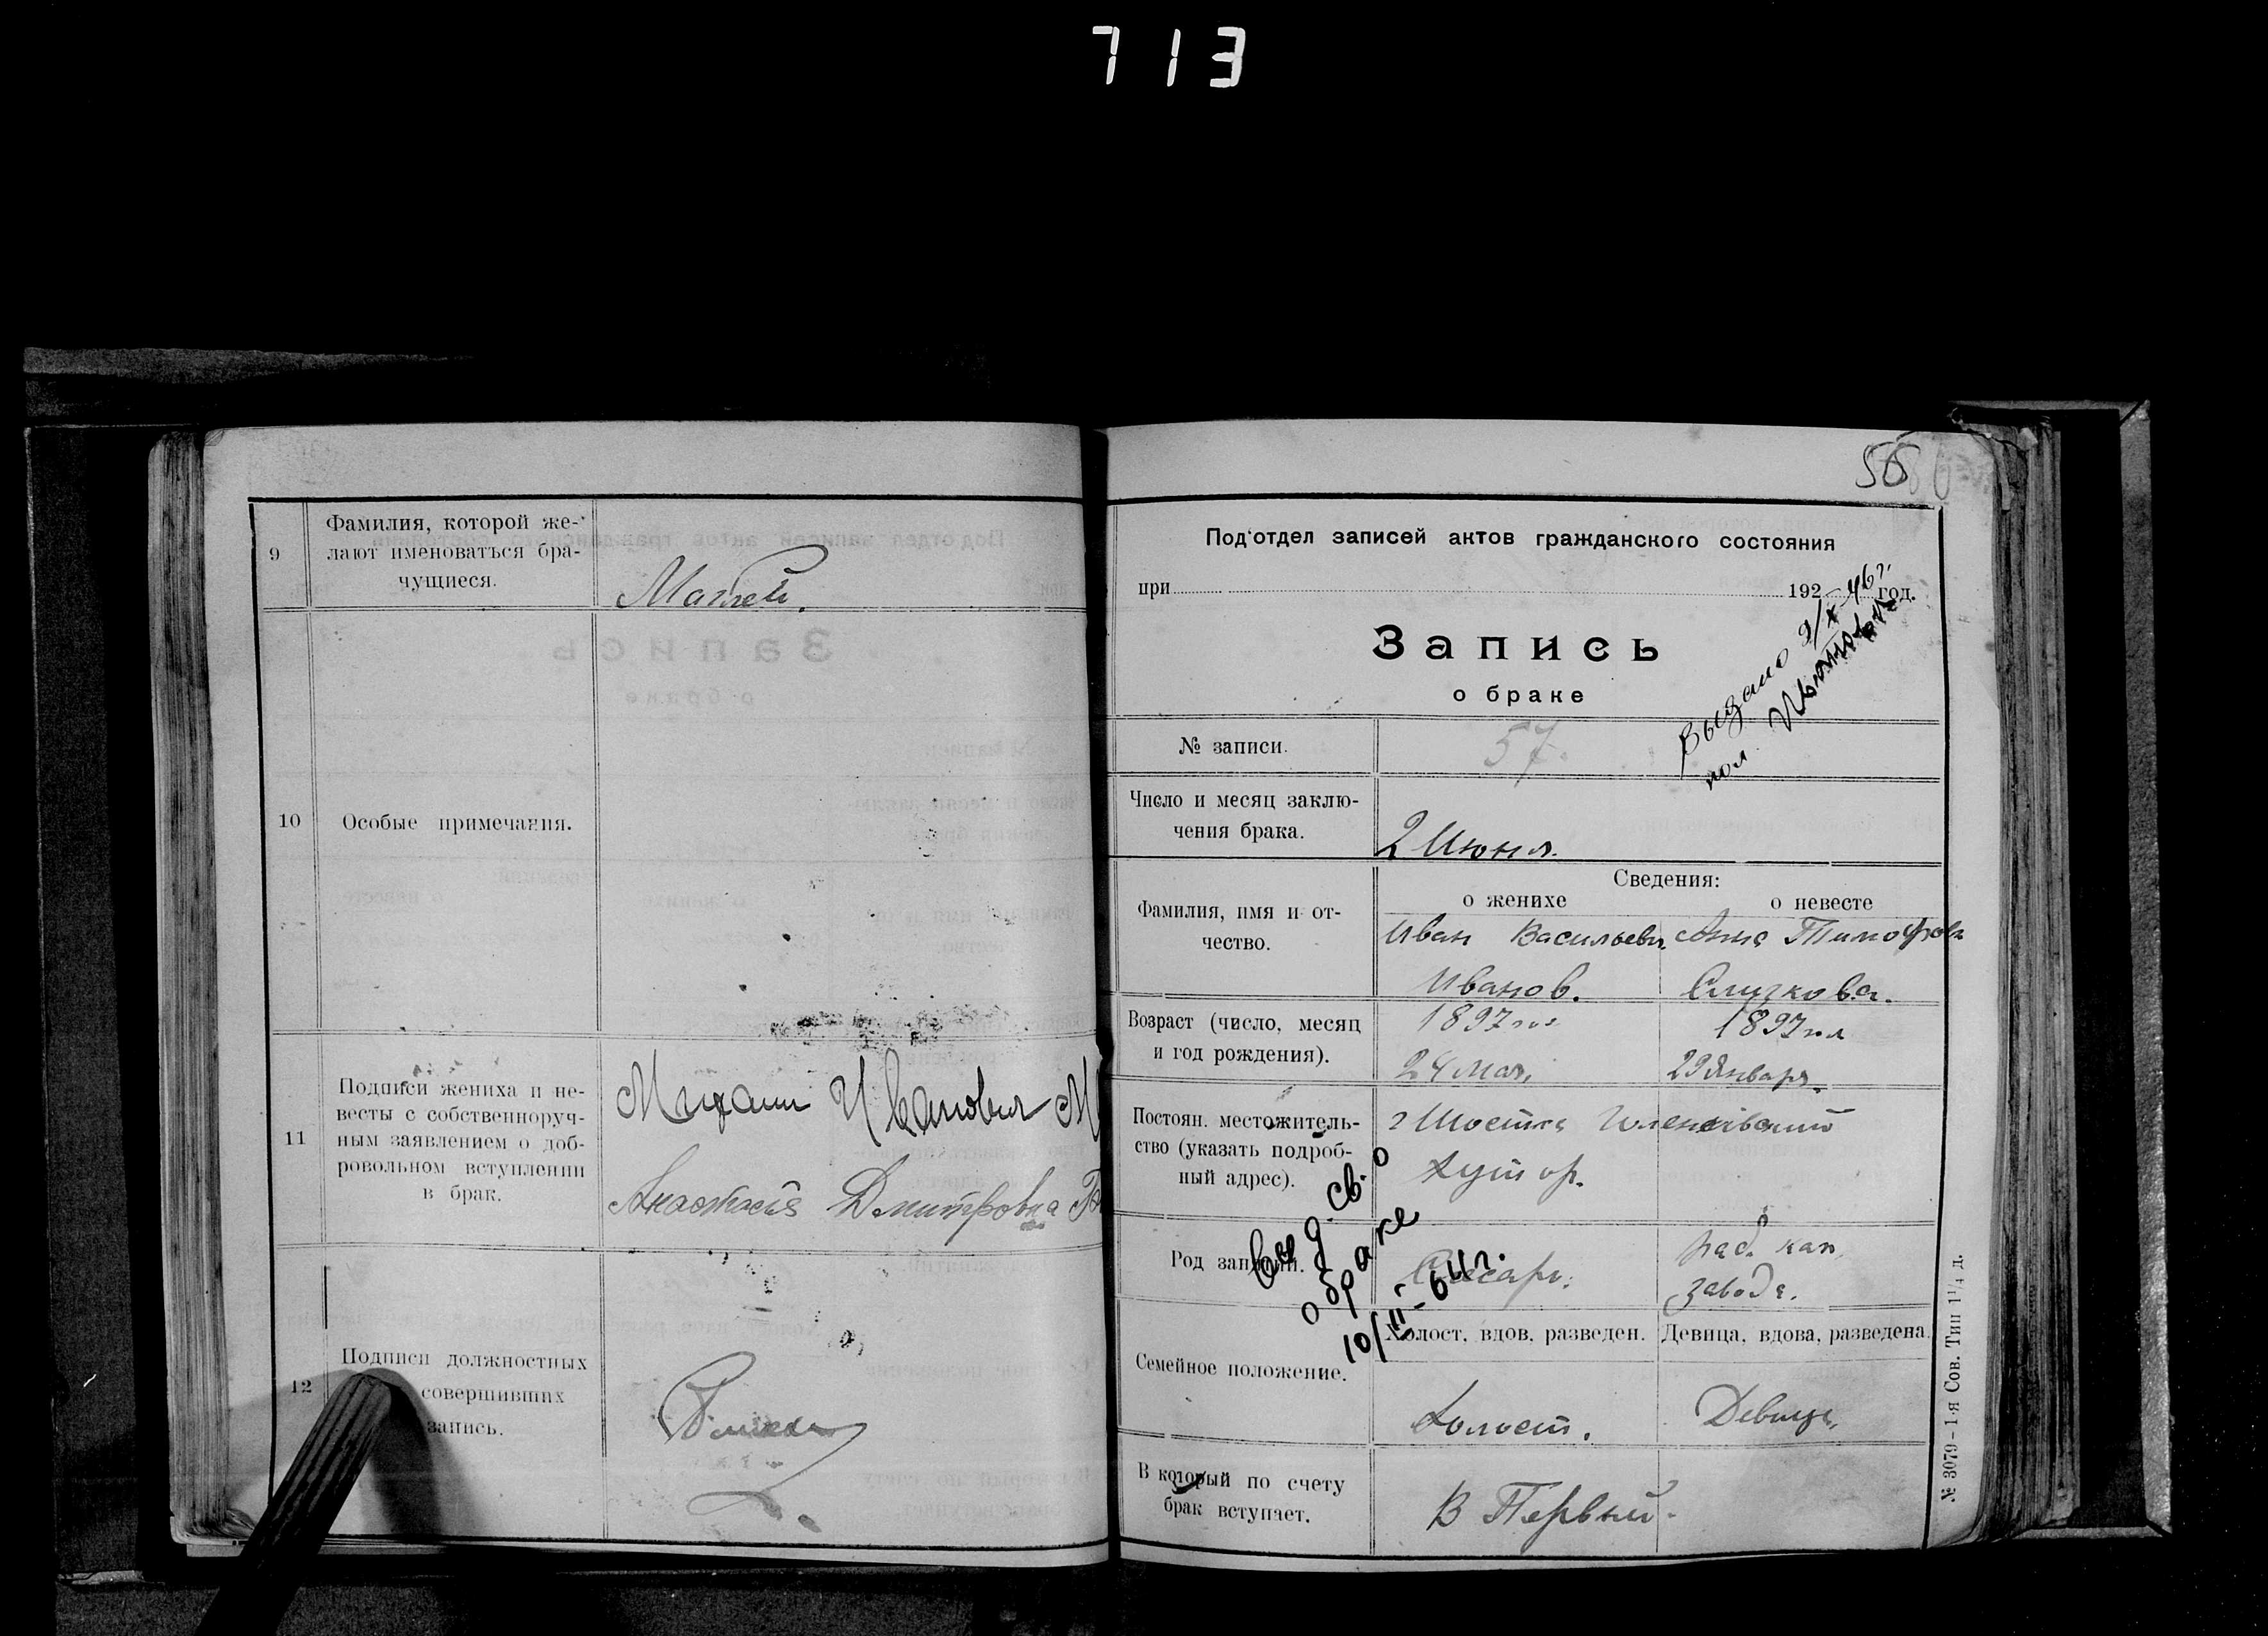 713
9
Фамилия, которой же-
лают именоваться бра-
чущиеся.
10
Особые примечания.
11
Подписи жениха и не-
весты с собственноруч-
ным заявлением о доб-
ровольном вступлении
в брак.
Михаил Иванович М
Анастасия Дмитровна
12
Подписи должностных
совершивших
запись.
56
Под'отдел записей актов гражданского состояния
при 192 год.
Выдано 9/X-46 г.
пол.
Запись
о браке
№ записи.
57.
Число и месяц заклю-
чения брака.
2 Июня.
Сведения:
о женихе о невесте
Фамилия, имя и от-
чество.
Иван Васильевич Анна Тимофеев
Иванов.
Возраст (число, месяц
и год рождения).
1897 1897
24 мая, 29 Января.
Постоян. местожитель-
ство (указать подроб-
ный адрес).
г Шостка
Хутор.
Выд. св. о
браке
10/III-64 г.
Род занятий.
Слесарь. раб. кап.
завода.
Холост, вдов, разведен. Девица, вдова, разведена.
Семейное положение.
Холост. Девица.
В который по счету
брак вступает.
В Первый.
№ 3079 – 1-я Сов. Тип 1¼ д.